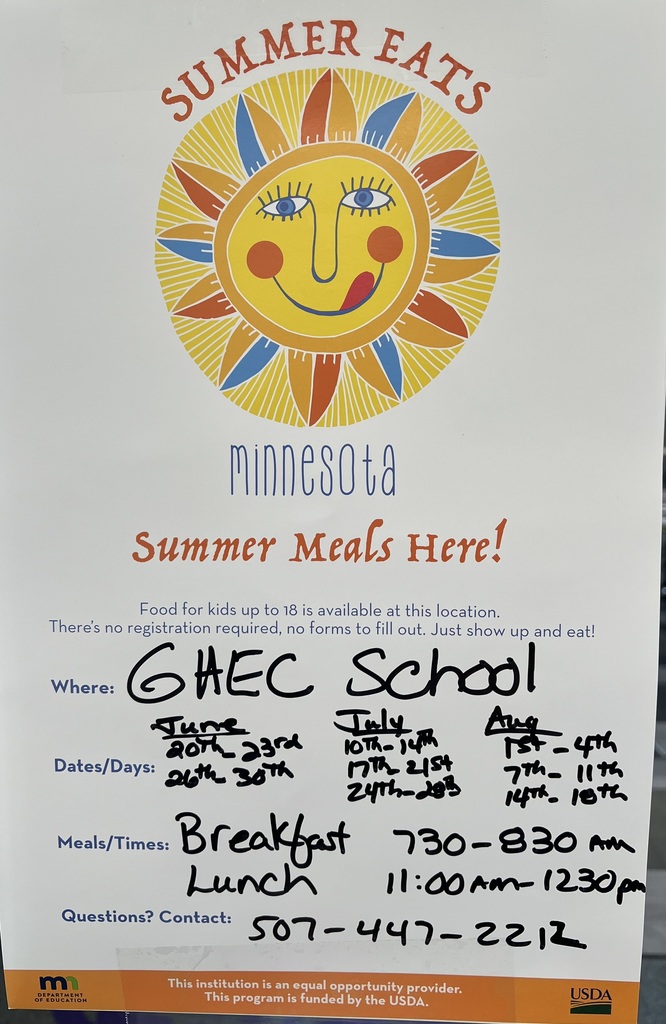 SUMMER EATS
minnesota
Summer Meals Here!
Food for kids up to 18 is available at this location.
There's no registration required, no forms to fill out. Just show up and eat!
Where: GHEC School
June July Aug
Dates/Days: 20th - 23rd 10th - 14th 1st - 4th
26th - 30th 17th - 21st 7th - 11th
24th - 28th 14th - 18th
Meals/Times: Breakfast 730 - 830 Am
Lunch 11:00 Am - 1230 pm
Questions? Contact: 507-447-2212
mn
DEPARTMENT
OF EDUCATION
This institution is an equal opportunity provider.
This program is funded by the USDA.
USDA